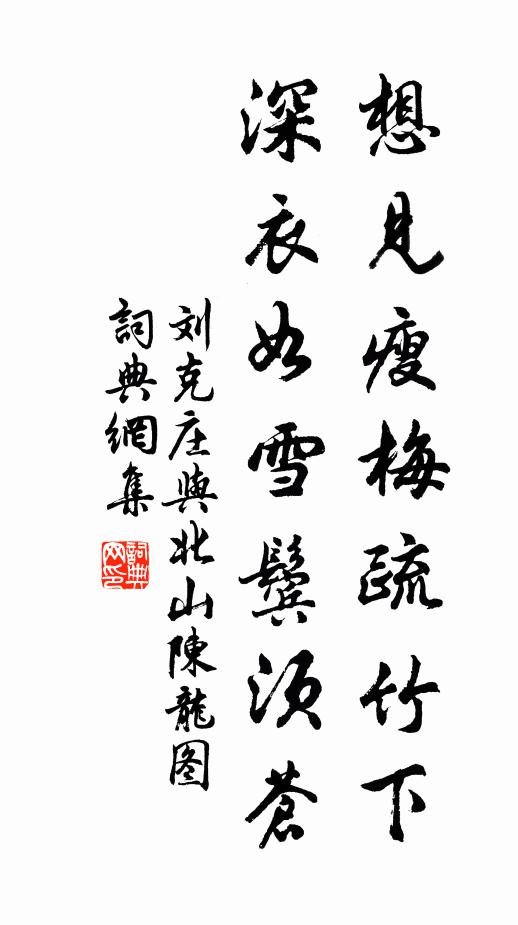 想見瘦梅疏竹下
深衣如雪鬢須蒼
刘克庄與北山陳龍图
詞典網集
詞典网印